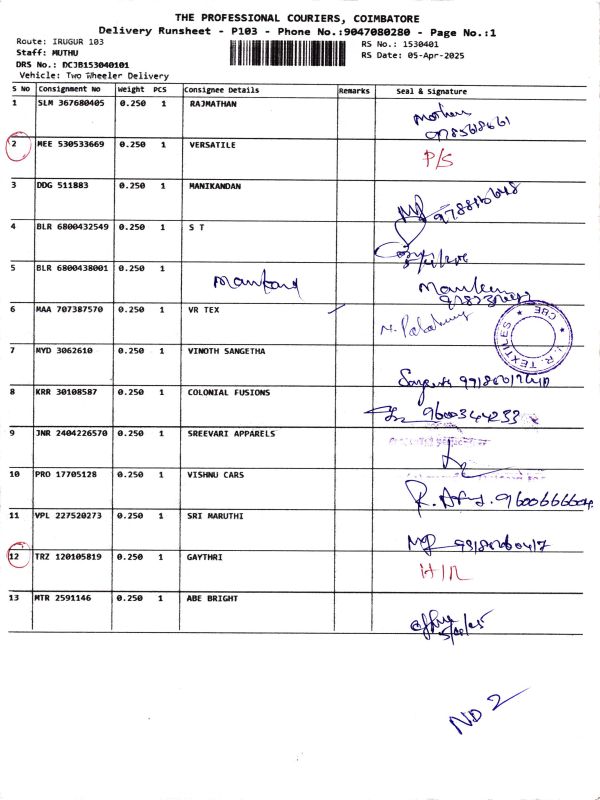 THE PROFESSIONAL COURIERS, COIMBATORE
Delivery Runsheet - P103 - Phone No.:9047080280 - Page No.:1
Route: IRUGUR 103 RS No.: 1530401
Staff: MUTHU RS Date: 05-Apr-2025
DRS No.: DCJB153040101
Vehicle: Two Wheeler Delivery
S No Consignment No Weight PCS Consignee Details Remarks Seal & Signature
1 SLM 367680405 0.250 1 RAJMATHAN
2 MEE 530533669 0.250 1 VERSATILE P/S
3 DDG 511883 0.250 1 MANIKANDAN
4 BLR 6800432549 0.250 1 S T
5 BLR 6800438001 0.250 1
6 MAA 707387570 0.250 1 VR TEX
7 MYD 3062610 0.250 1 VINOTH SANGETHA
8 KRR 30108587 0.250 1 COLONIAL FUSIONS 9600344233
9 JNR 2404226570 0.250 1 SREEVARI APPARELS
10 PRO 17705128 0.250 1 VISHNU CARS
11 VPL 227520273 0.250 1 SRI MARUTHI
12 TRZ 120105819 0.250 1 GAYTHRI
13 MTR 2591146 0.250 1 ABE BRIGHT
ND 2